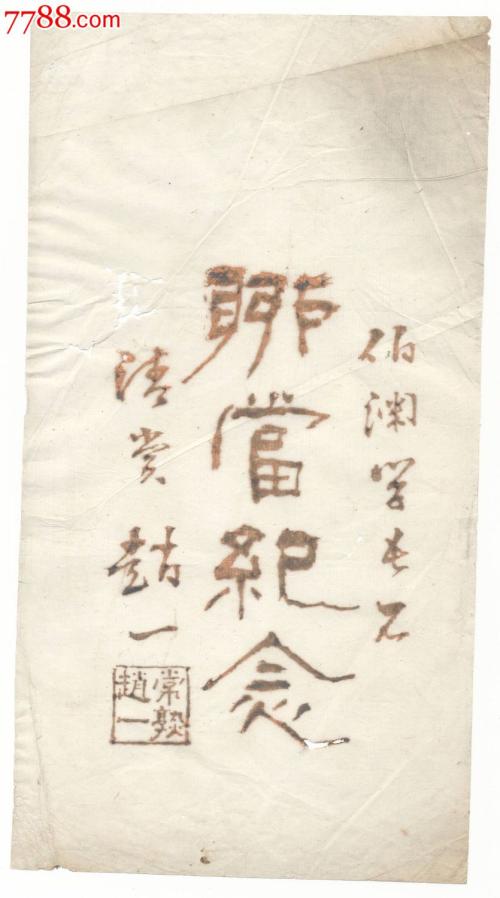 7788.com
伯澜学长
聊當紀念
清赏
趙一
常熟
趙一